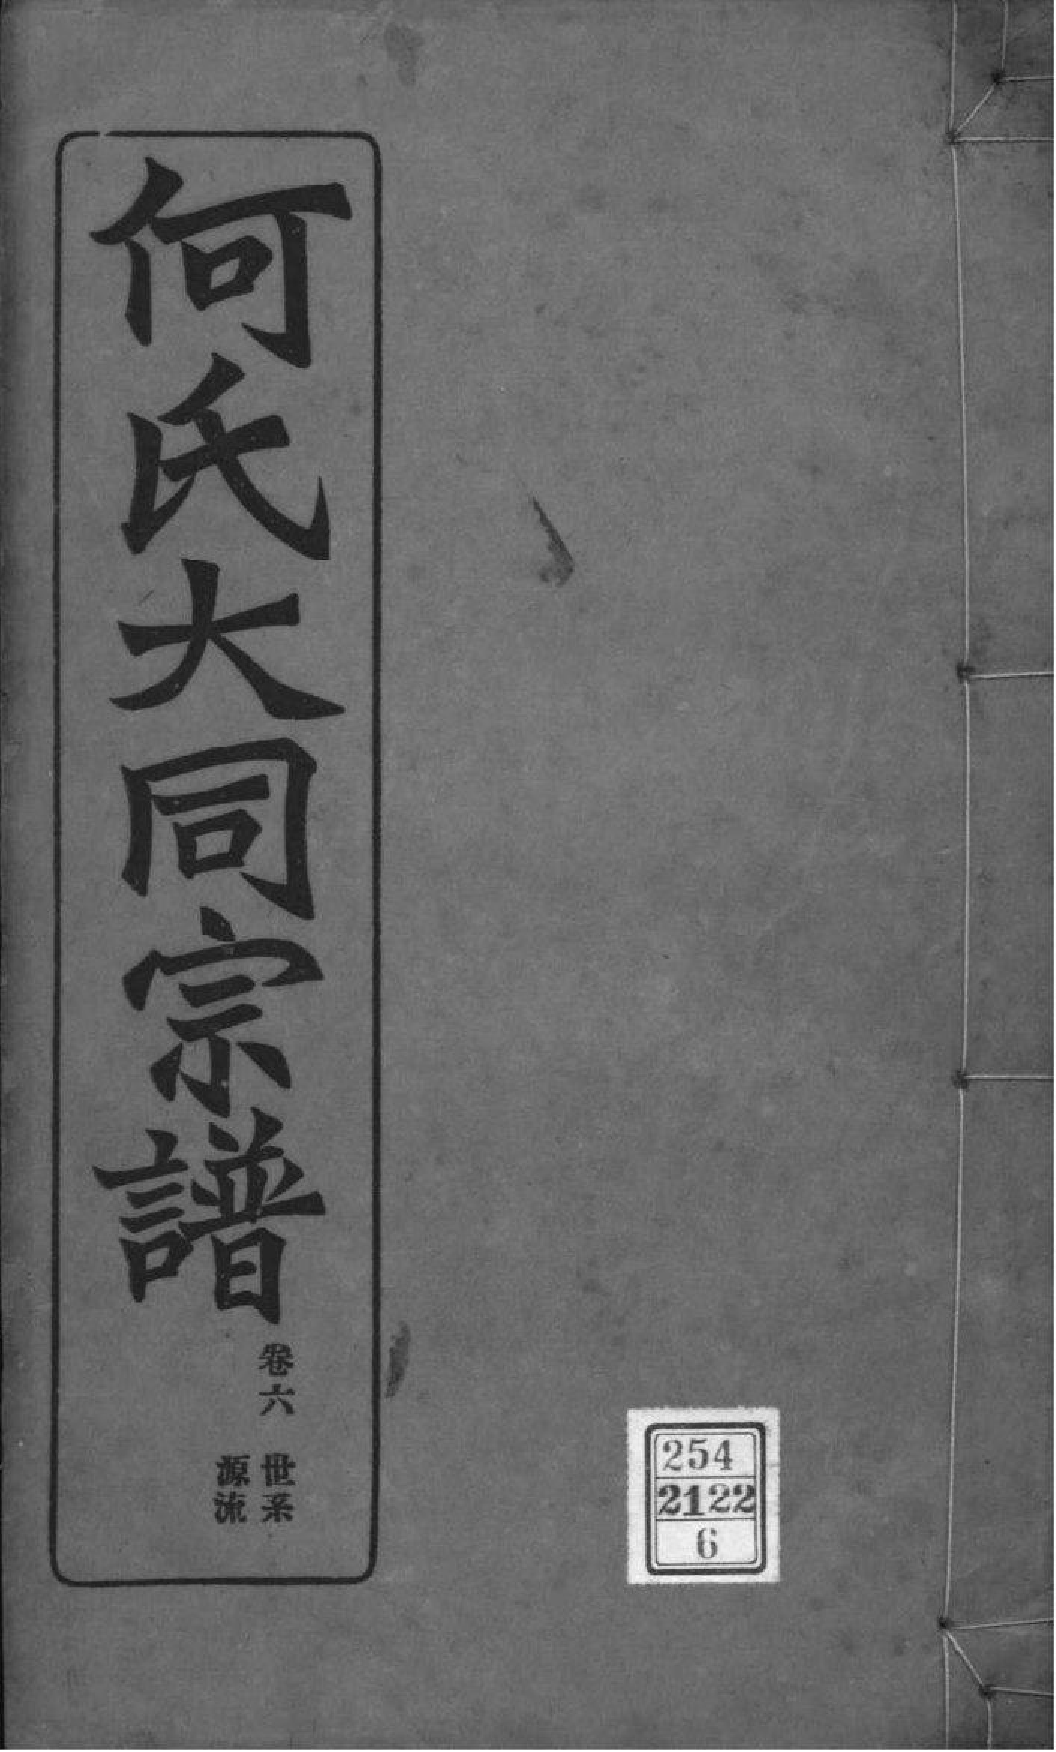 何氏大同宗譜
卷六
世系
源流
254
2122
6